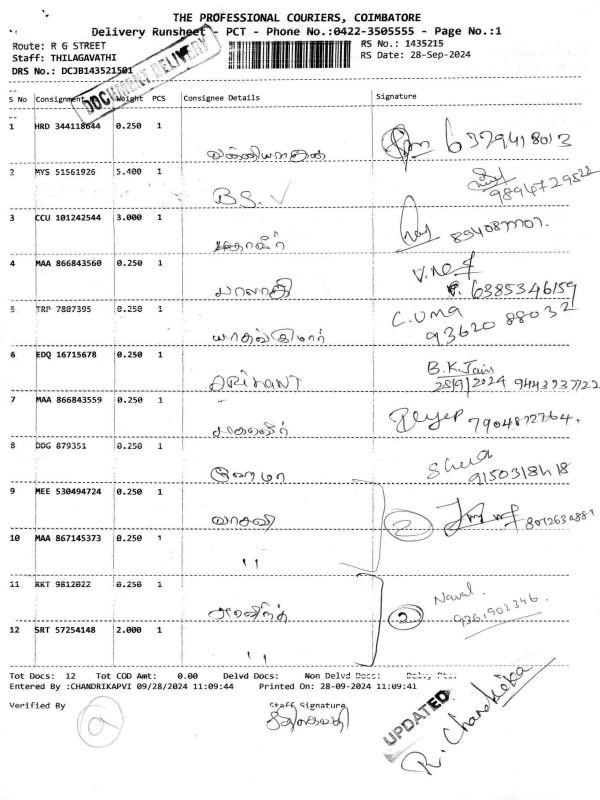 THE PROFESSIONAL COURIERS, COIMBATORE
Delivery Runsheet - PCT - Phone No.:0422-3505555 - Page No.:1
Route: R G STREET
RS No.: 1435215
Staff: THILAGAVATHI
RS Date: 28-Sep-2024
DRS No.: DCJB143521501
DOCUMENT DELIVERY
S No Consignment Weight PCS Consignee Details Signature
1 HRD 344118644 0.250 1
6379418013
2 MYS 51561926 5.400 1
BS.
9894729522
3 CCU 101242544 3.000 1
4 MAA 866843560 0.250 1
பாலாதி
6385346159
5 TRP 7807395 0.250 1
C.UMA
93620 88032
6 EDQ 16715678 0.250 1
ARIHANT
B.K.Jain
28/9/2024 9443737722
7 MAA 866843559 0.250 1
7904872764.
8 DDG 879351 0.250 1
ஹேமா
9150318418
9 MEE 530494724 0.250 1
வாசவி
2
10 MAA 867145373 0.250 1
''
11 RKT 9812022 0.250 1
அரவிந்த்
2
Naval.
9361902346.
12 SRT 57254148 2.000 1
''
Tot Docs: 12 Tot COD Amt: 0.00 Delvd Docs: Non Delvd Docs: Delay Pts:
Entered By :CHANDRIKAPVI 09/28/2024 11:09:44 Printed On: 28-09-2024 11:09:41
Verified By
Staff Signature
UPDATED
R. Chandrika